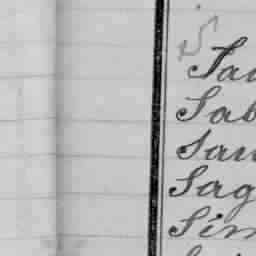 S
Sau
Sab
Sau
Sag
Sim